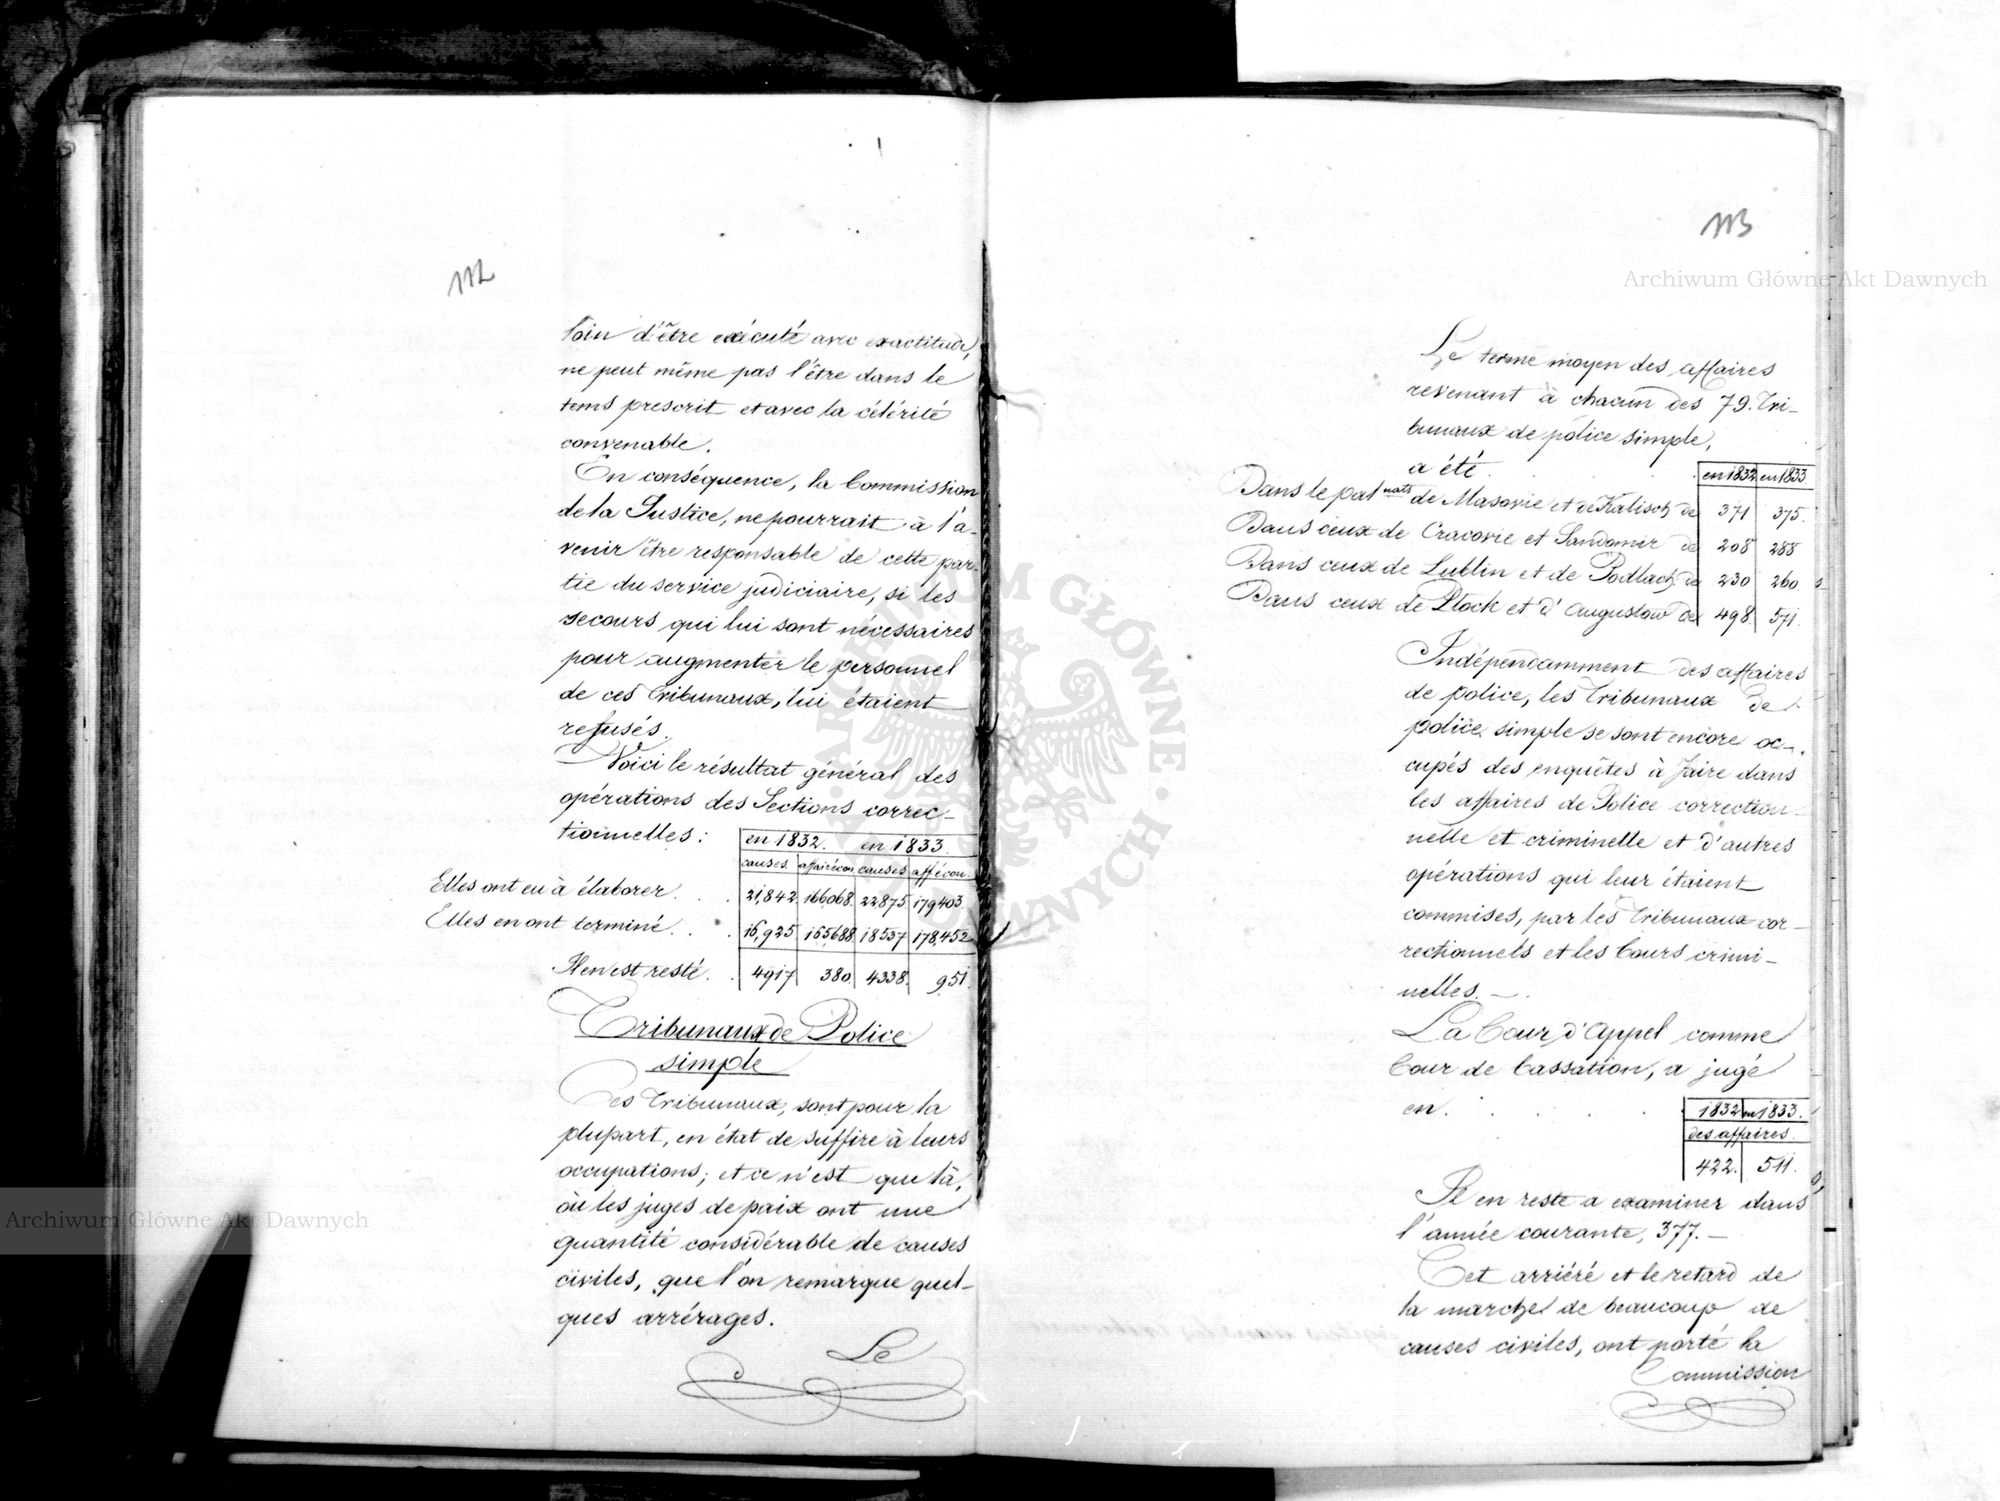 112
loin d'être exécuté avec exactitude,
ne peut même pas l'être dans le
tems prescrit et avec la célérité
convenable.
En conséquence, la Commission
de la Justice, ne pourrait à l'a-
venir être responsable de cette par-
tie du service judiciaire, si les
secours qui lui sont nécessaires
pour augmenter le personnel
de ces Tribunaux, lui étaient
refusés.
Voici le résultat général des
opérations des Sections correc-
tionnelles:
en 1832. en 1833.
causes. affairécon causes aff écon.
Elles ont eu à élaborer. . . 21,842 166068. 22875 179403.
Elles en ont terminé. . . 16,925 165688 18537 178,452
Il en est resté. . 4917 380. 4338. 951.
Tribunaux de Police
simple
Ces Tribunaux, sont pour la
plupart, en état de suffire à leurs
occupations; et ce n'est que là,
où les juges de paix ont une
quantité considérable de causes
civiles, que l'on remarque quel-
ques arrérages.
Le
113
Le terme moyen des affaires
revenant à chacun des 79. Tri-
bunaux de police simple,
a été. en 1832 en 1833
Dans le pal nats de Masovie et de Kalisch de 371 375.
Dans ceux de Cracovie et Sandomir de 208 288
Dans ceux de Lublin et de Podlach de 230 260.
Dans ceux de Plock et d'Augustow de 498. 571.
Indépendamment des affaires
de police, les Tribunaux de
police simple se sont encore oc-
cupés des enquêtes à faire dans
les affaires de Police correction-
nelle et criminelle et d'autres
opérations qui leur étaient
commises, par les Tribunaux cor-
rectionnels et les Cours crimi-
nelles. -
La Cour d'Appel comme
Cour de Cassation, a jugé
en. . . . . 1832 en 1833.
des affaires.
422. 511.
Il en reste a examiner dans
l'année courante, 377. -
Cet arriéré et le retard de
la marche de beaucoup de
causes civiles, ont porté la
Commission
Archiwum Główne Akt Dawnych
Archiwum Główne Akt Dawnych
ARCHIWUM GŁÓWNE AKT DAWNYCH